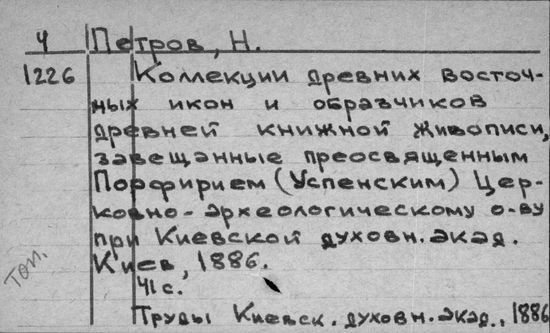 Ч Петров, Н.
1226 Коллекции древних восточ-
ных икон и образчиков
древней книжной живописи,
завещанные преосвященным
Порфирием (Успенским) Цер-
ковно-археологическому о-ву
при Киевской духовн. акад.
Киев, 1886.
41 с.
Труды Киевск. духовн. акад., 1886